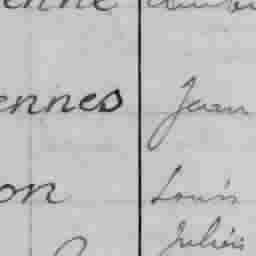 enne
ennes Jean
on Louis
Julien